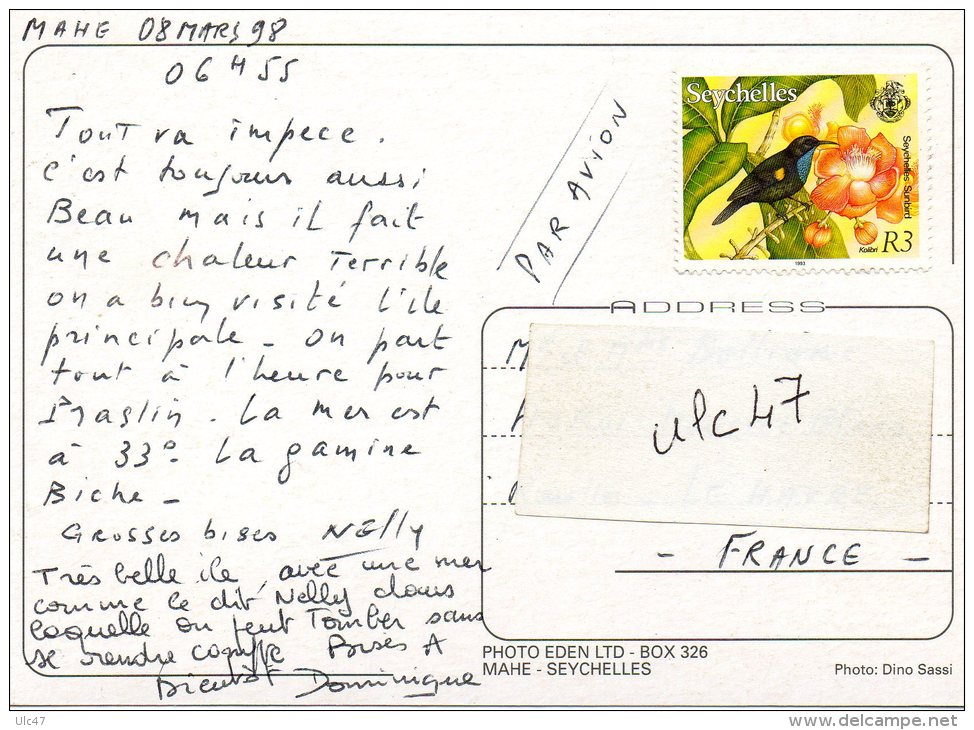 MAHE 08 MARS 98
06 H 55
Tout va impece.
c'est toujours aussi
Beau mais il fait
une chaleur Terrible
on a bien visité l'ile
principale - on part
tout à l'heure pour
Praslin. La mer est
à 33° - La gamine
Biche -
Grosses bises NELLY
Très belle ile, avec une mer
comme le dit Nelly dans
laquelle on peut Tomber sans
se rendre compte Bises A
Bientôt Dominique
PAR AVION
Seychelles
Seychelles Sunbird
Kolibri
R3
1993
ADDRESS
ulc47
LE HAVRE
- FRANCE -
PHOTO EDEN LTD - BOX 326
MAHE - SEYCHELLES
Photo: Dino Sassi
Ulc47
delcampe.net